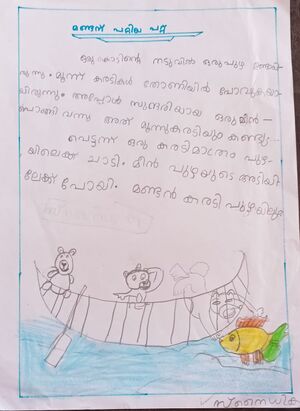 മണ്ടന് പറ്റിയ പറ്റ്
ഒരു കാട്ടിന്റെ നടുവിൽ ഒരു പുഴ ഉണ്ടായി
രുന്നു. മൂന്ന് കരടികൾ തോണിയിൽ പോവുകയാ
യിരുന്നു. അപ്പോൾ സുന്ദരിയായ ഒരു മീൻ
പൊങ്ങി വന്നു അത് മൂന്നുകരടിയും കണ്ടു.
പെട്ടെന്ന് ഒരു കരടിമാത്രം പുഴ
യിലെക്ക് ചാടി. മീൻ പുഴയുടെ അടിയി
ലേക്ക് പോയി. മണ്ടൻ കരടി പുഴയിലും